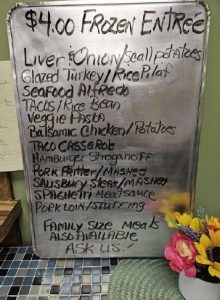 $4.00 Frozen Entree
Liver & Onion/scall potatoes
Glazed Turkey/Rice Pilaf
Seafood Alfredo
Tacos/Rice Bean
Veggie Pasta
Balsamic Chicken/Potatoes
Taco Casserole
Hamburger Stroganoff
Pork Fritter/Mashed
Salisbury Steak/Mashed
Spaghetti Meatsauce
Pork Loin/Stuffing
Family Size Meals
Also Available
Ask Us!